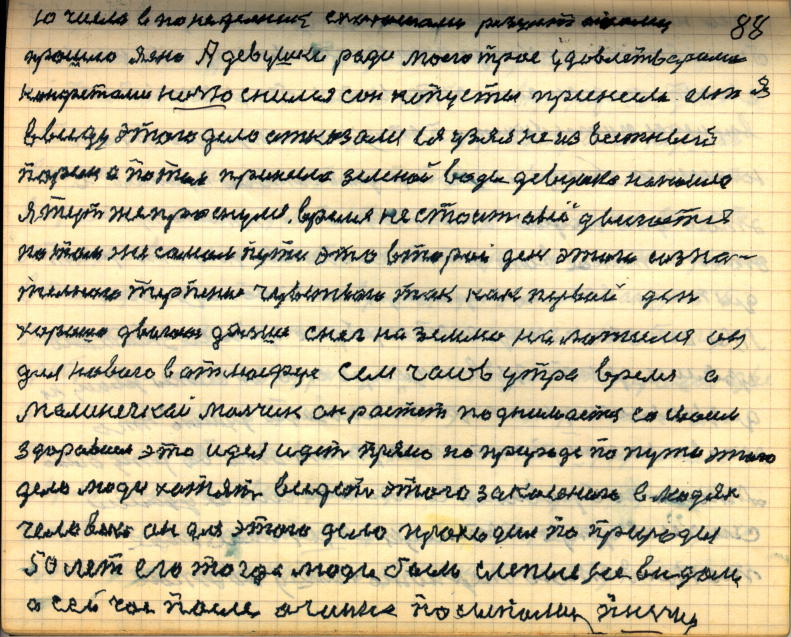 88
10 числа в понеделник
прошло Яенс А девушки ради моего трое удовлетварила
конфетами ночю снился сон капусты принесли. Я
ввиду этого дело отказался я взял неизвестный
парен а потом принесла зеленой воды девушка
я тут же проснулся, время не стоит оно двигается
по том же самом пути это второй ден этого созна-
телного терпения чувствую так как первый ден
хорошо двигаюс дальше снег на землю наложился он
для нового в атмосфере Сем часов утра время а
малинечкай малчик он растет поднимается со своим
здоровием это идея идет прямо по природе по пути этого
дела люди хотят видеть этого закаленого в людях
человека он для этого дела проходил по природы
50 лет его тогда люди были слепые не видали,
а сейчас после